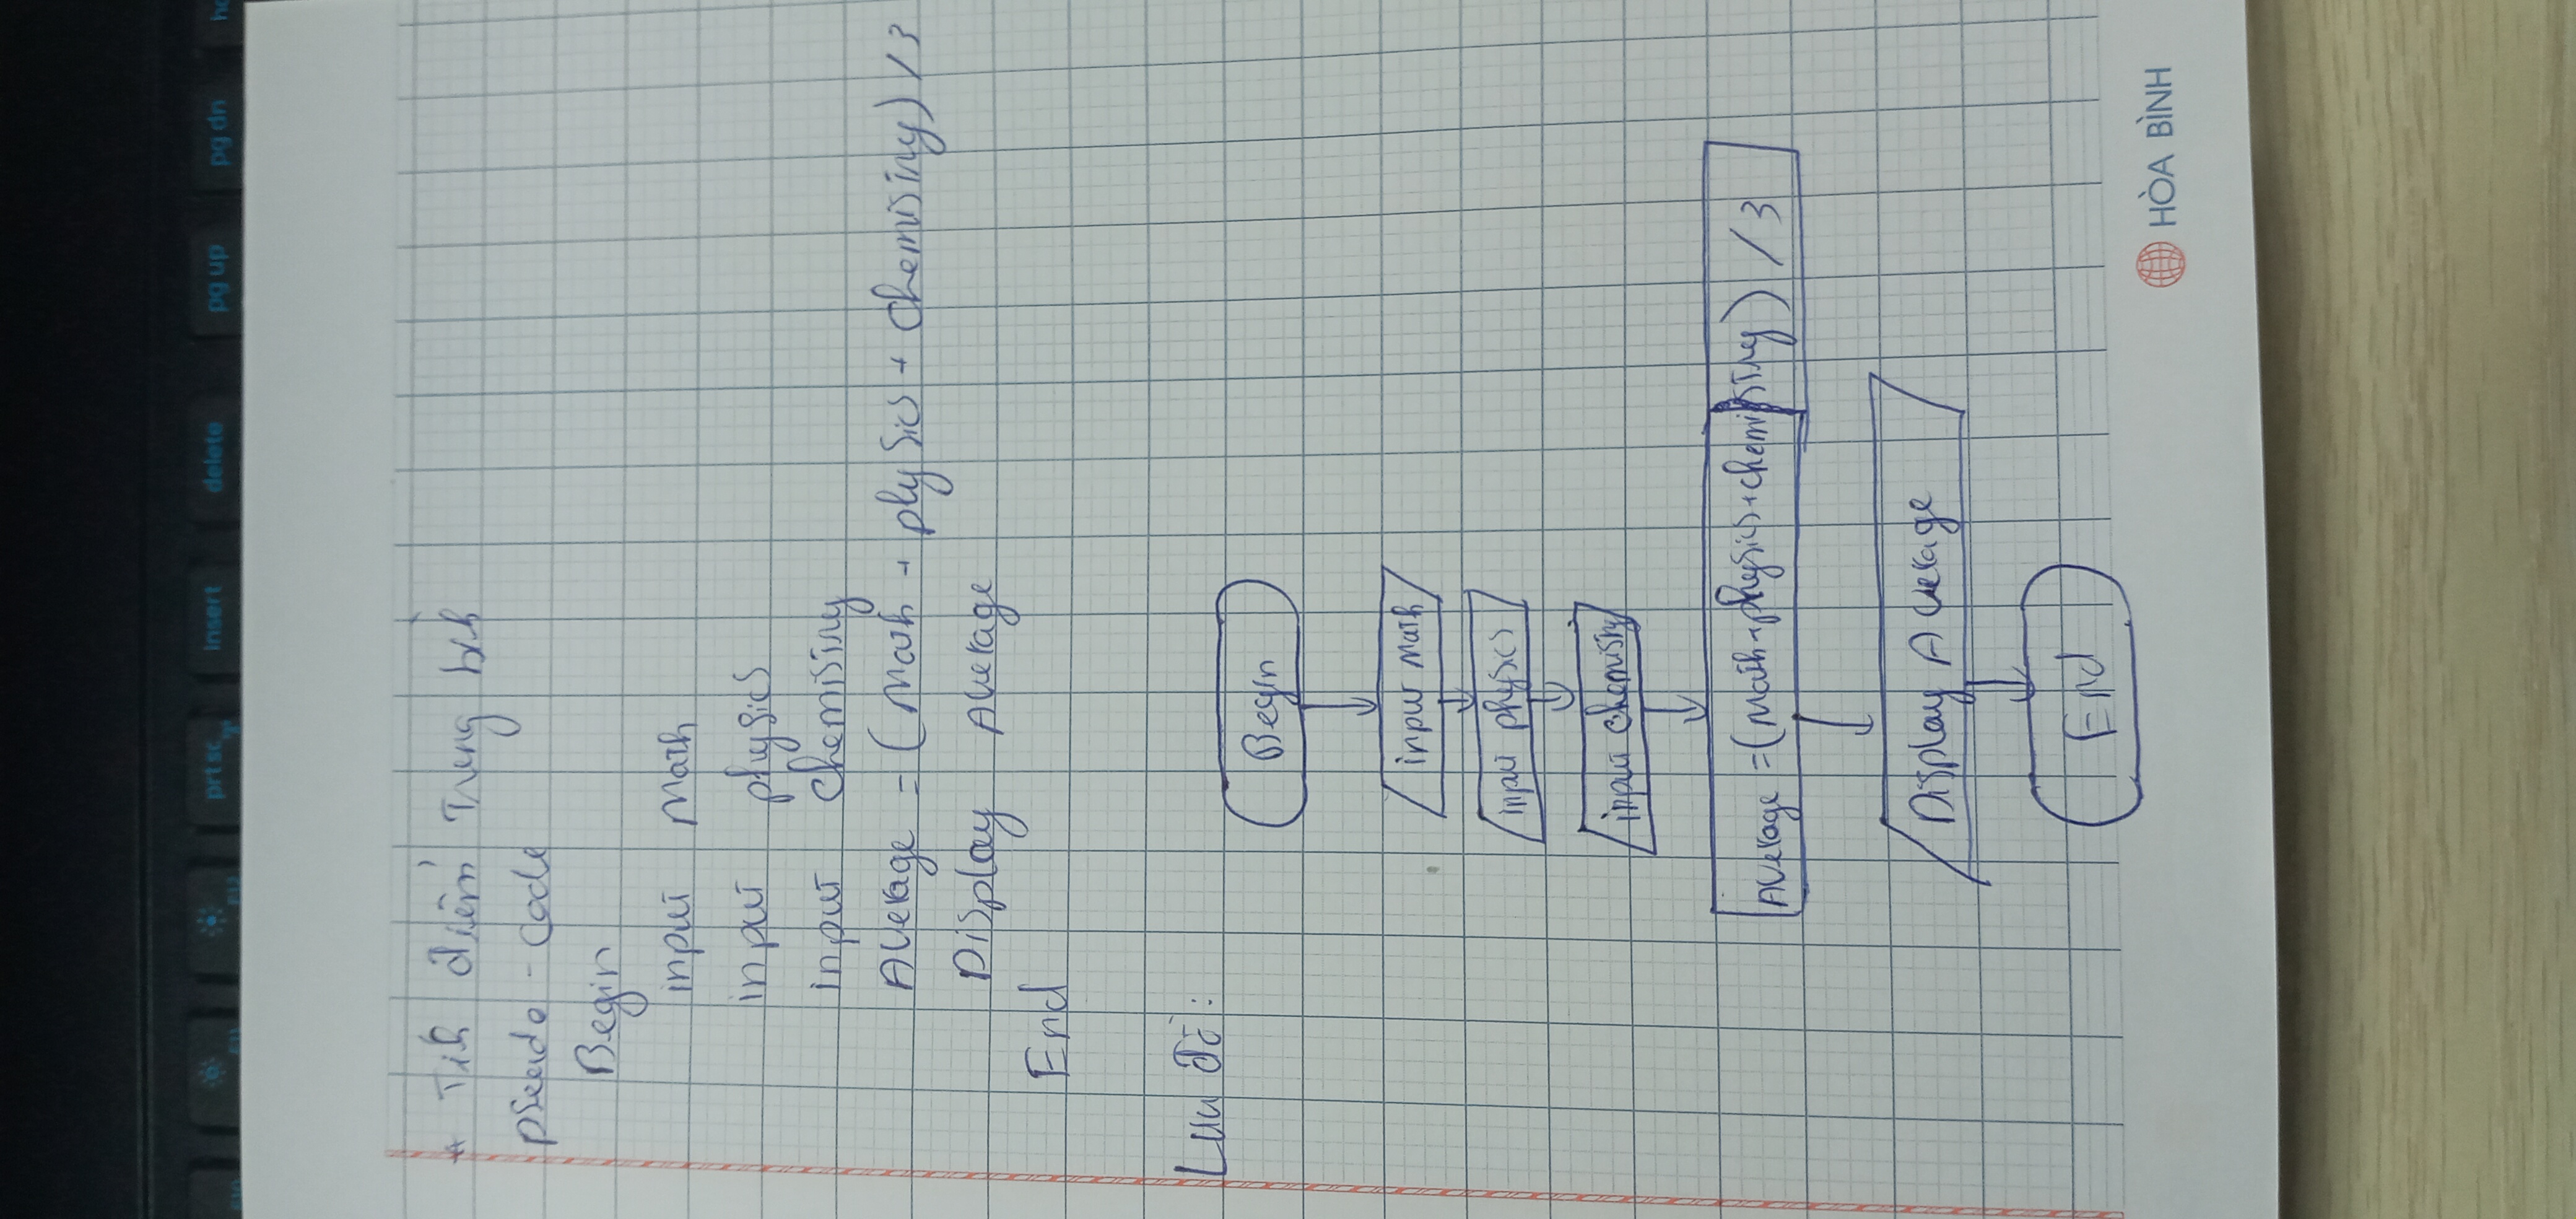 prt sc
insert
delete
pg up
pg dn
F11
F12
* Tính điểm Trung bình
pseudo - code
Begin
input Math
input physics
input chemistry
Average = (Math + physics + chemistry) / 3
Display Average
End
Lưu đồ:
Begin
input Math
input physics
input chemistry
Average = (Math + physics + chemistry) / 3
Display Average
End
HÒA BÌNH